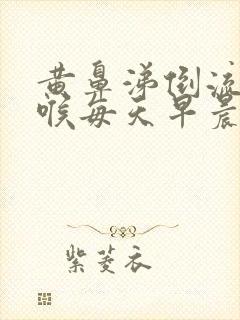 黄鼻涕倒流
喉每天早晨
紫菱衣